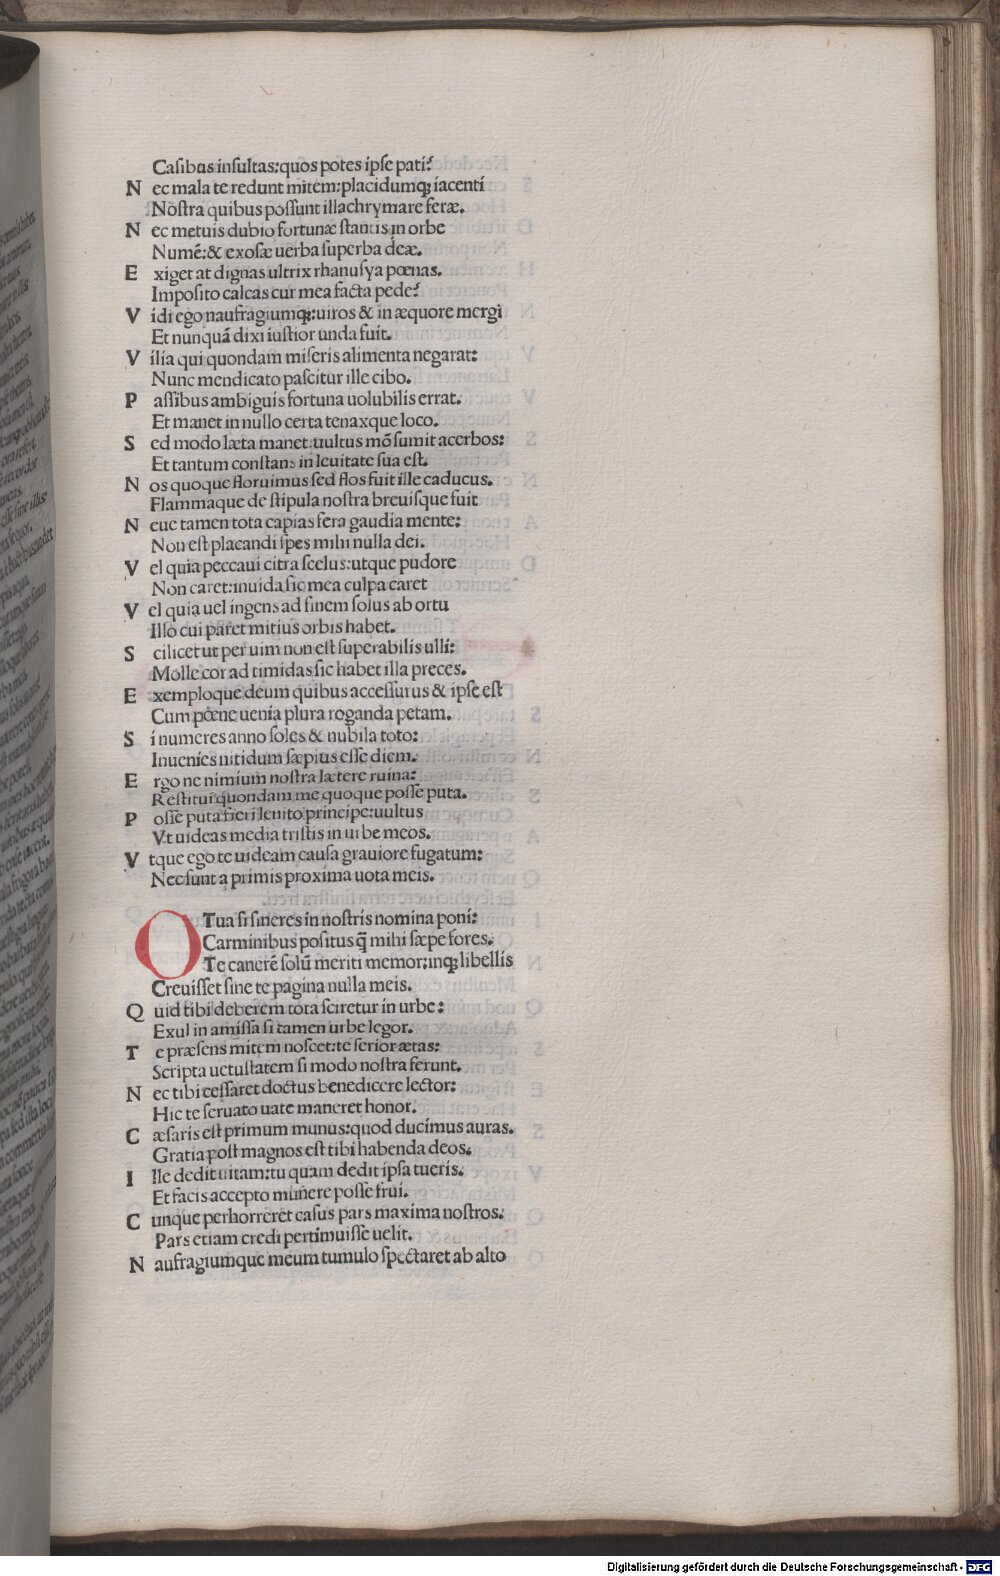 Casibus insultas: quos potes ipse pati?
N ec mala te redunt mitem: placidumq; iacenti
Nostra quibus possunt illachrymare feræ.
N ec metuis dubio fortunæ stantis in orbe
Numē: & exosæ uerba superba deæ.
E xiget at dignas ultrix rhanusya pœnas.
Imposito calcas cur mea facta pede?
V idi ego naufragiumq;: uiros & in æquore mergi
Et nunquā dixi iustior unda fuit.
V ilia qui quondam miseris alimenta negarat:
Nunc mendicato pascitur ille cibo.
P assibus ambiguis fortuna uolubilis errat.
Et manet in nullo certa tenaxque loco.
S ed modo læta manet: uultus mō sumit acerbos:
Et tantum constans in leuitate sua est.
N os quoque floruimus sed flos fuit ille caducus.
Flammaque de stipula nostra breuisque fuit
N eue tamen tota capias fera gaudia mente:
Non est placandi spes mihi nulla dei.
V el quia peccaui citra scelus: utque pudore
Non caret: inuida sic mea culpa caret
V el quia uel ingens ad finem solus ab ortu
Illo cui paret mitius orbis habet.
S cilicet ut per uim non est superabilis ulli:
Molle cor ad timidas sic habet illa preces.
E xemploque deum quibus accessurus & ipse est
Cum pœne uenia plura roganda petam.
S i numeres anno soles & nubila toto:
Inuenies nitidum sæpius esse diem.
E rgo ne nimium nostra lætere ruina:
Restitui quondam me quoque posse puta.
P osse puta fieri lenito principe: uultus
Vt uideas media tristis in urbe meos.
V tque ego te uideam causa grauiore fugatum:
Nec sunt a primis proxima uota meis.
O Tua si sineres in nostris nomina poni:
Carminibus positus q̄ mihi sæpe fores.
Te canerē solū meriti memor: inq; libellis
Creuisset sine te pagina nulla meis.
Q uid tibi deberem tota sciretur in urbe:
Exul in amissa si tamen urbe legor.
T e præsens mitem noscet: te serior ætas:
Scripta uetustatem si modo nostra ferunt.
N ec tibi cessaret doctus benedicere lector:
Hic te seruato uate maneret honor.
C æsaris est primum munus: quod ducimus auras.
Gratia post magnos est tibi habenda deos.
I lle dedit uitam: tu quam dedit ipsa tueris.
Et facis accepto munere posse frui.
C unque perhorreret casus pars maxima nostros:
Pars etiam credi pertimuisse uelit.
N aufragiumque meum tumulo spectaret ab alto
Digitalisierung gefördert durch die Deutsche Forschungsgemeinschaft - DFG